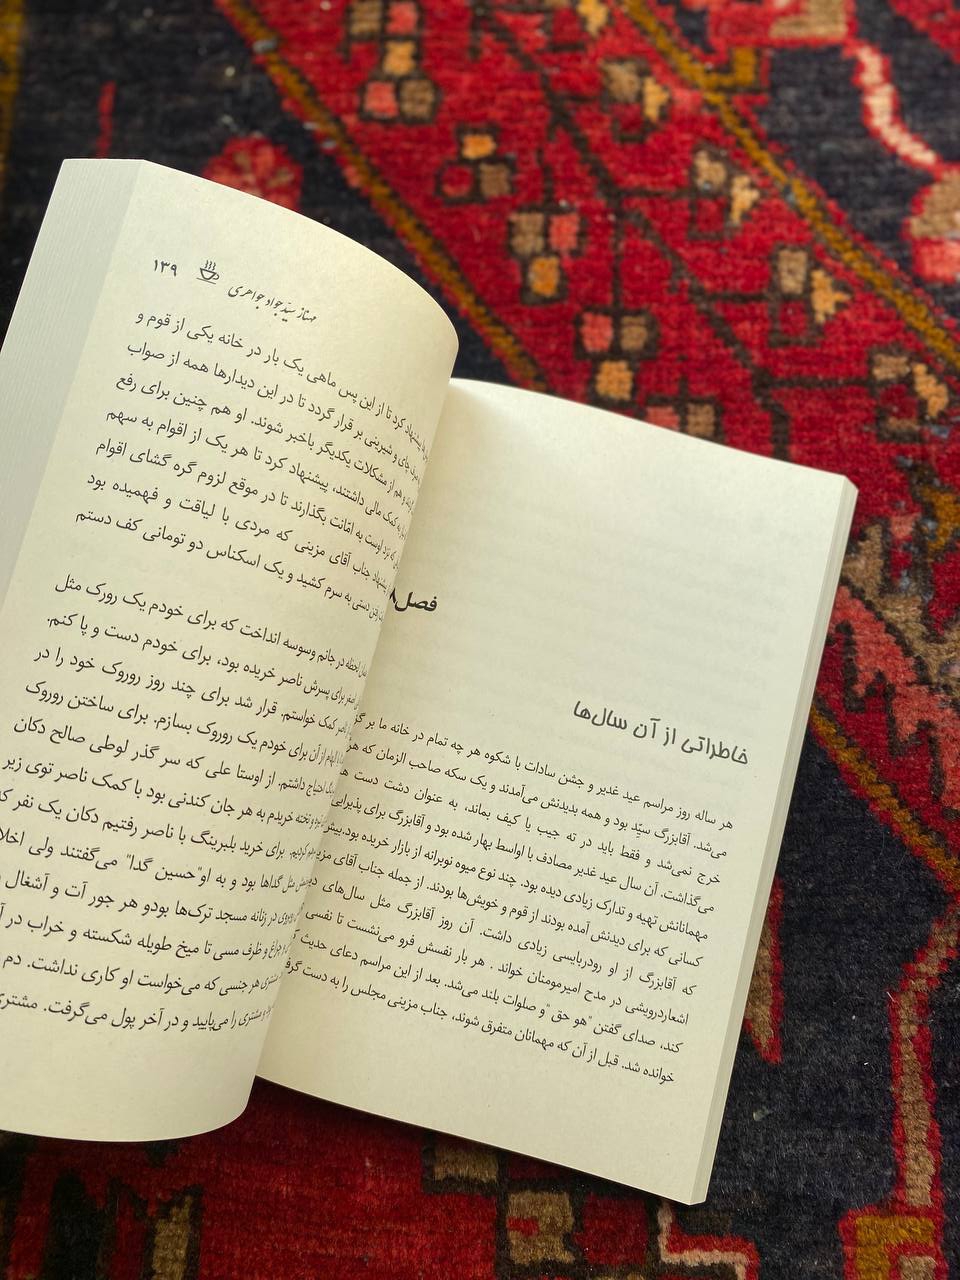 فصل۸
خاطراتی از آن سال‌ها
هر ساله روز مراسم عید غدیر و جشن سادات با شکوه هر چه تمام در خانه ما بر
می‌شد. آقابزرگ سیّد بود و همه بدیدنش می‌آمدند و یک سکه صاحب الزمان که
خرج نمی‌شد و فقط باید در ته جیب یا کیف بماند، به عنوان دشت دست
می‌گذاشت. آن سال عید غدیر مصادف با اواسط بهار شده بود و آقابزرگ برای پذیرایی
مهمانانش تهیه و تدارک زیادی دیده بود. چند نوع میوه نوبرانه از بازار خریده بود.
کسانی که برای دیدنش آمده بودند از قوم و خویش‌ها بودند. از جمله جناب آقای
که آقابزرگ از او رودربایسی زیادی داشت. آن روز آقابزرگ مثل سال‌های
اشعاردرویشی در مدح امیرمومنان خواند . هر بار نفسش فرو می‌نشست تا نفسی
کند، صدای گفتن "هو حق "و صلوات بلند می‌شد. بعد از این مراسم دعای حدیث
خوانده شد. قبل از آن که مهمانان متفرق شوند، جناب مزینی مجلس را به دست
مهناز سیدجواد جواهری ۱۳۹
پیشنهاد کرد تا از این پس ماهی یک بار در خانه یکی از قوم و
چای و شیرینی بر قرار گردد تا در این دیدارها همه از صواب
و هم از مشکلات یکدیگر باخبر شوند. او هم چنین برای رفع
به کمک مالی داشتند، پیشنهاد کرد تا هر یک از اقوام به سهم
که نزد اوست به امانت بگذارند تا در موقع لزوم گره گشای اقوام
پیشنهاد جناب آقای مزینی که مردی با لیاقت و فهمیده بود
رفتن دستی به سرم کشید و یک اسکناس دو تومانی کف دستم
لحظه در جانم وسوسه انداخت که برای خودم یک رورک مثل
برای پسرش ناصر خریده بود، برای خودم دست و پا کنم.
ناصر کمک خواستم. قرار شد برای چند روز روروک خود را در
الهام از آن برای خودم یک روروک بسازم. برای ساختن روروک
احتیاج داشتم. از اوستا علی که سر گذر لوطی صالح دکان
تخته خریدم به هر جان کندنی بود با کمک ناصر توی زیر
برای خرید بلبرینگ با ناصر رفتیم دکان یک نفر که
مثل گداها بود و به او"حسین گدا" می‌گفتند ولی
در زنانه مسجد ترک‌ها بودو هر جور آت و آشغال
چراغ و ظرف مسی تا میخ طویله شکسته و خراب در
مشتری هر جنسی که می‌خواست او کاری نداشت. دم
مشتری را می‌پایید و در آخر پول می‌گرفت.